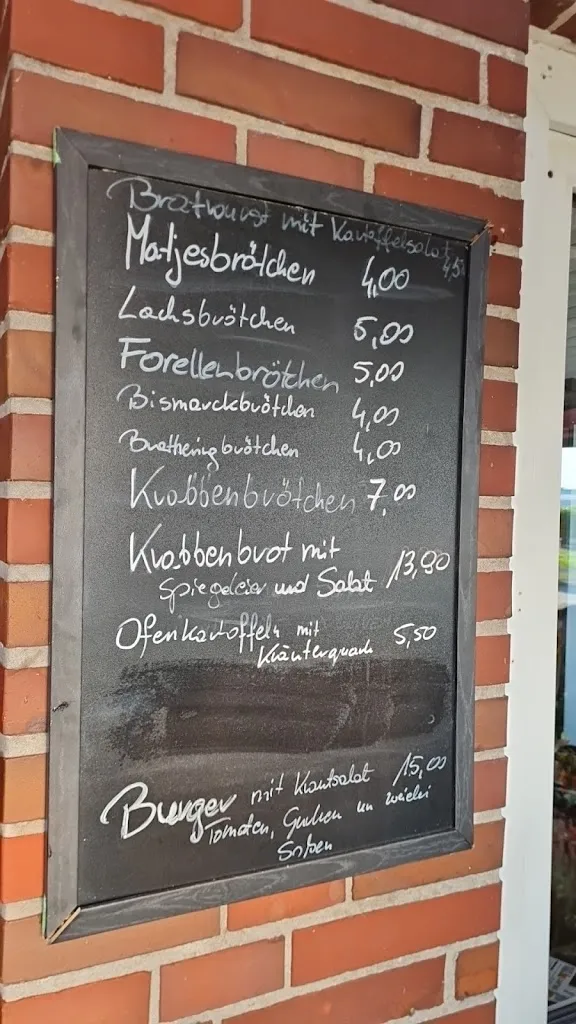 Bratwurst mit Kartoffelsalat 4,5
Matjesbrötchen 4,00
Lachsbrötchen 5,00
Forellenbrötchen 5,00
Bismarckbrötchen 4,00
Bratheringbrötchen 4,00
Krabbenbrötchen 7,00
Krabbenbrot mit
Spiegeleier und Salat 13,90
Ofenkartoffeln mit
Kräuterquark 5,50
Burger mit Krautsalat 15,00
Tomaten, Gurken un